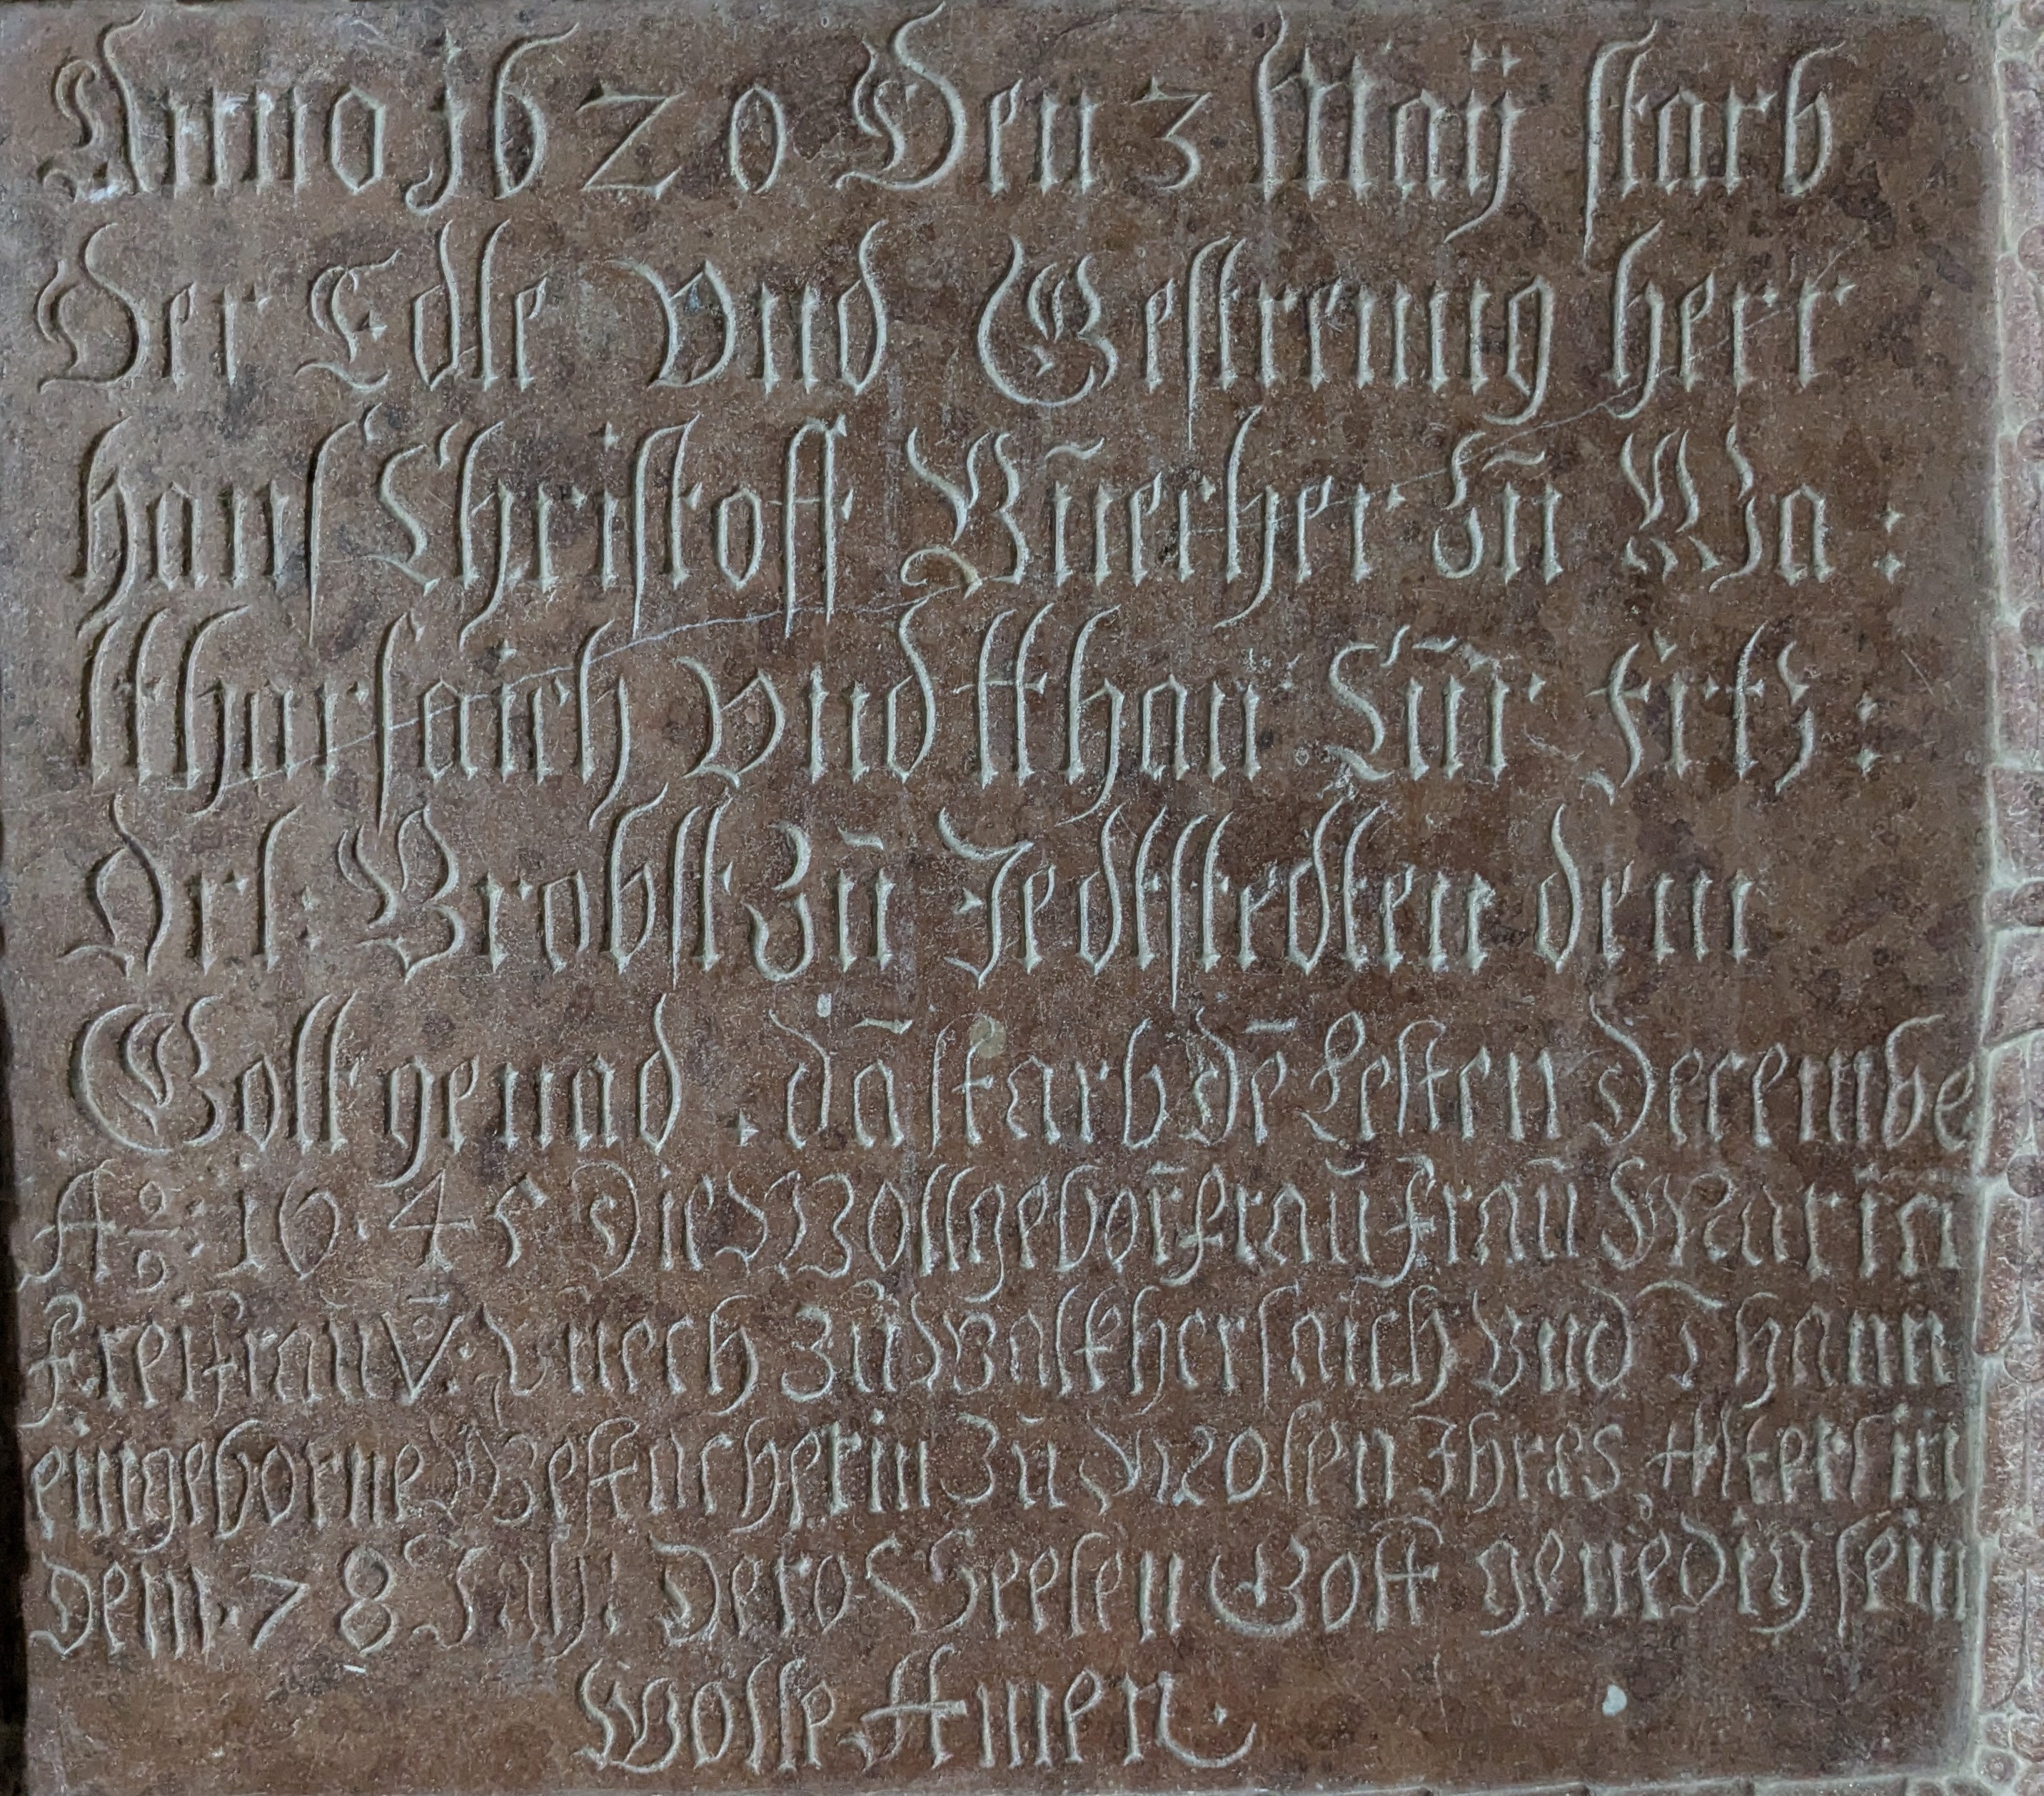 Anno 1620 Den 3 Maÿ starb
Der Edle Vnd Gestrenng herr
hans Christoff Vuecher Zu Wa:
ltharsaich Vnd Thann Für:
Drl: Probst Zu Jedtstedten dem
Gott genad. dā starb dē Lesten Decembe
Ao: 1645 Die Wollgeborn frau frau Maria
freifrau V: Vuech Zu Walthersaich Vnd Thann
eingeborne Zu Ihres Alters in
Dem. 78 Jahr Dero Seelen Gott genedig sein
Wolle Amen.